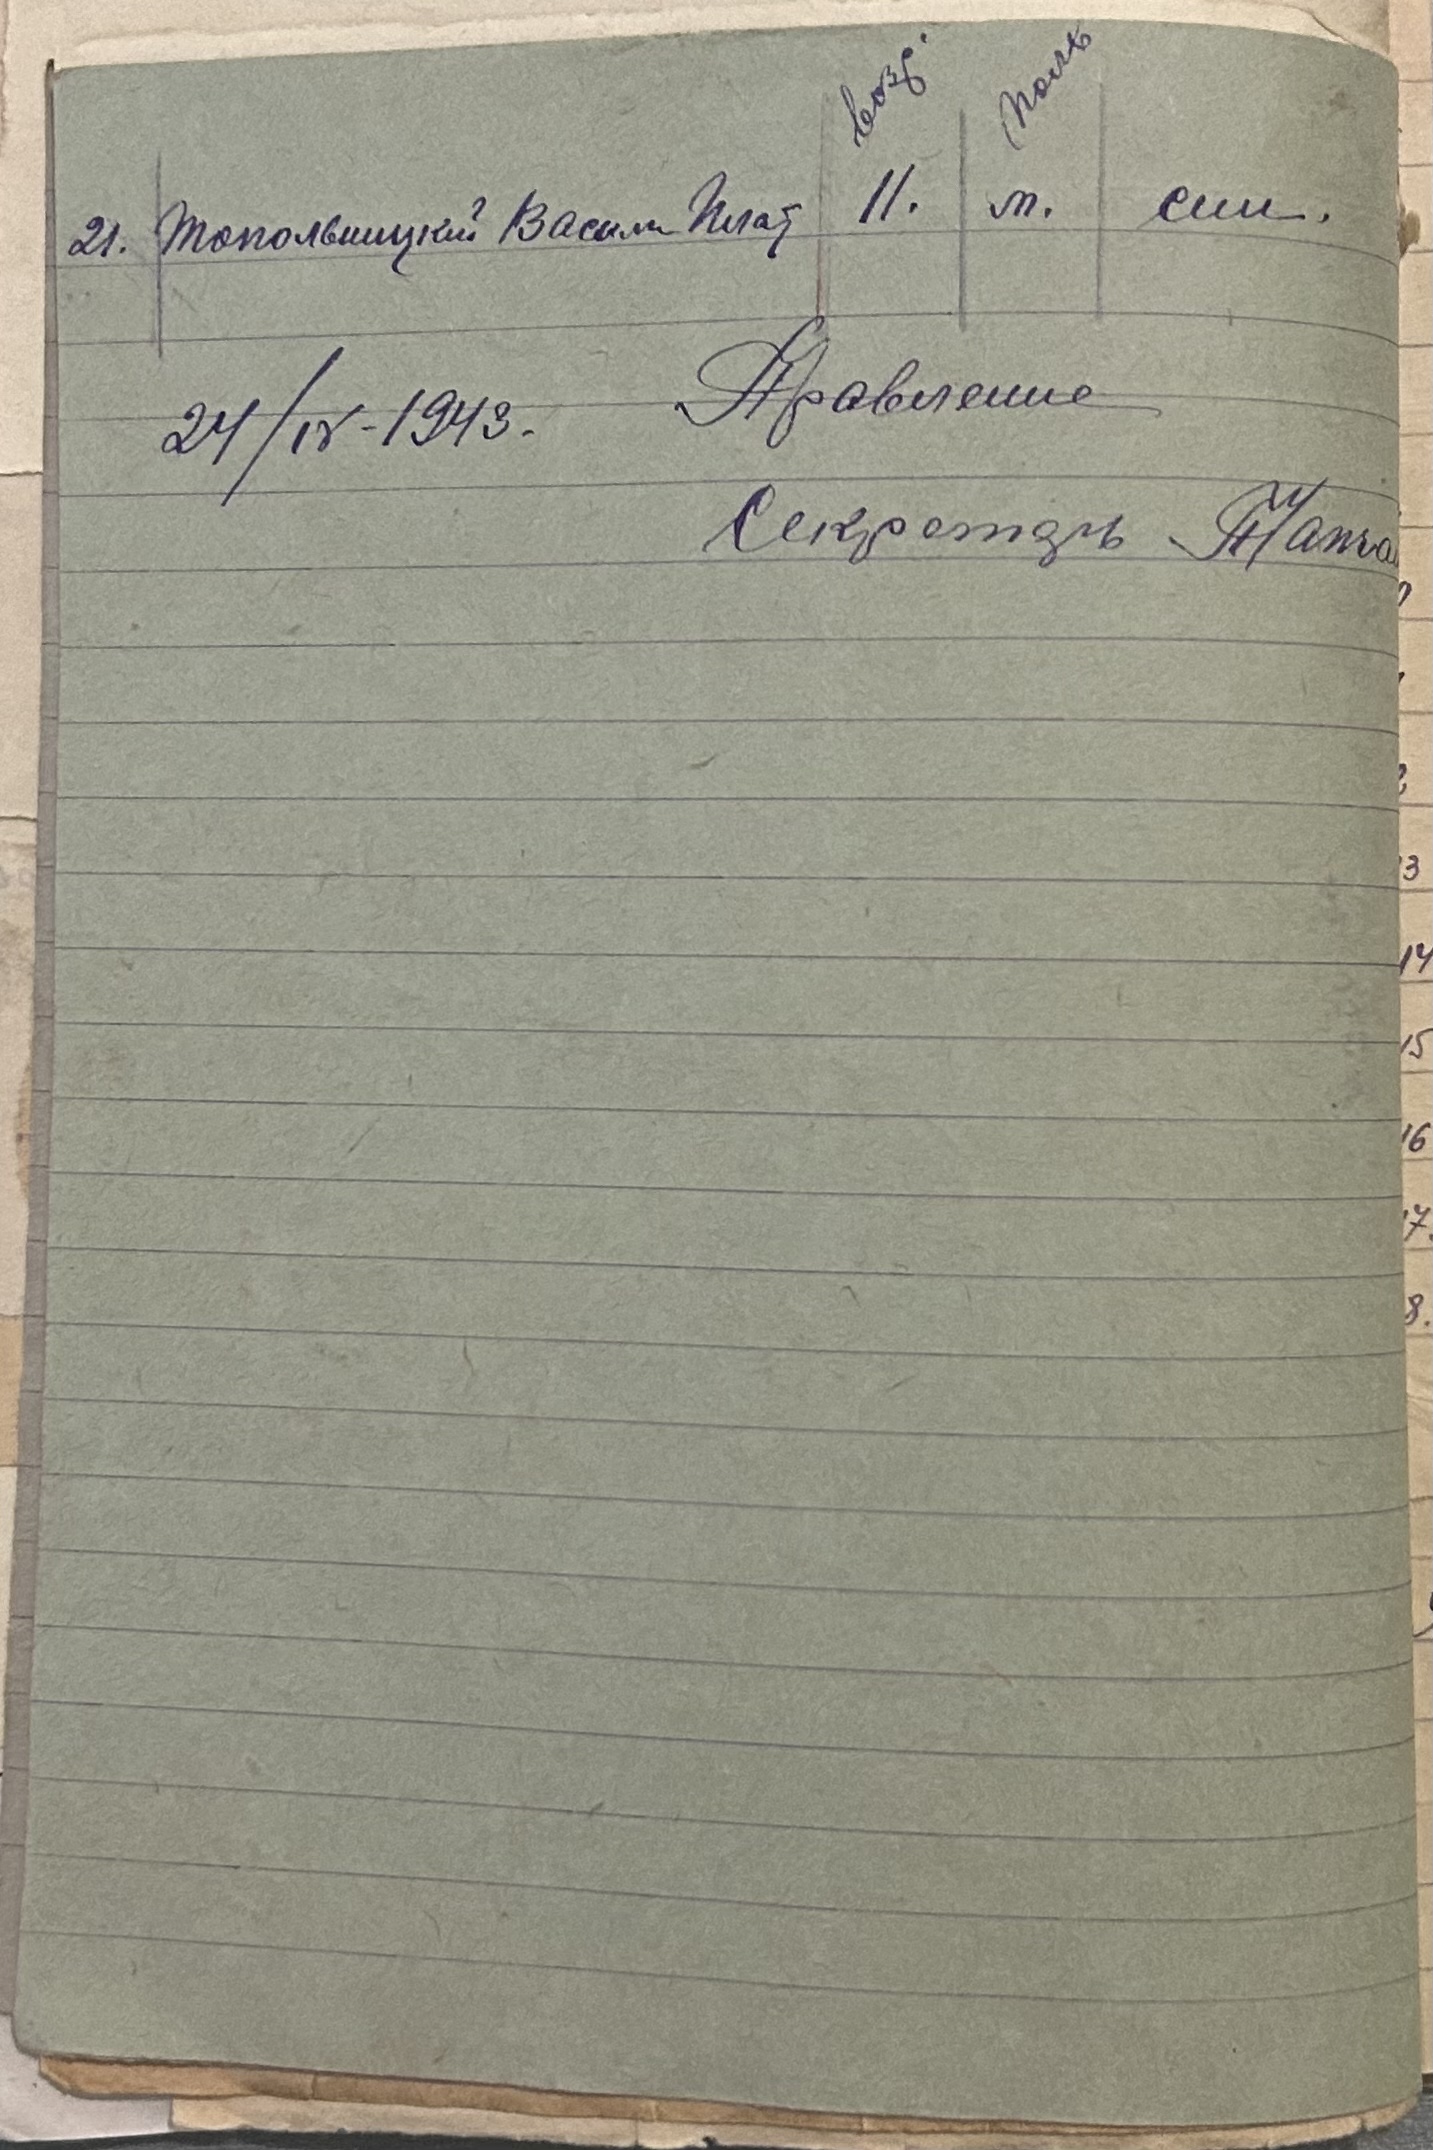 возр. полъ
21. Топольницкий Васили Плат 11. м. син.
24/IV-1943. Правление
Секретарь
13
14
15
16
17.
8.